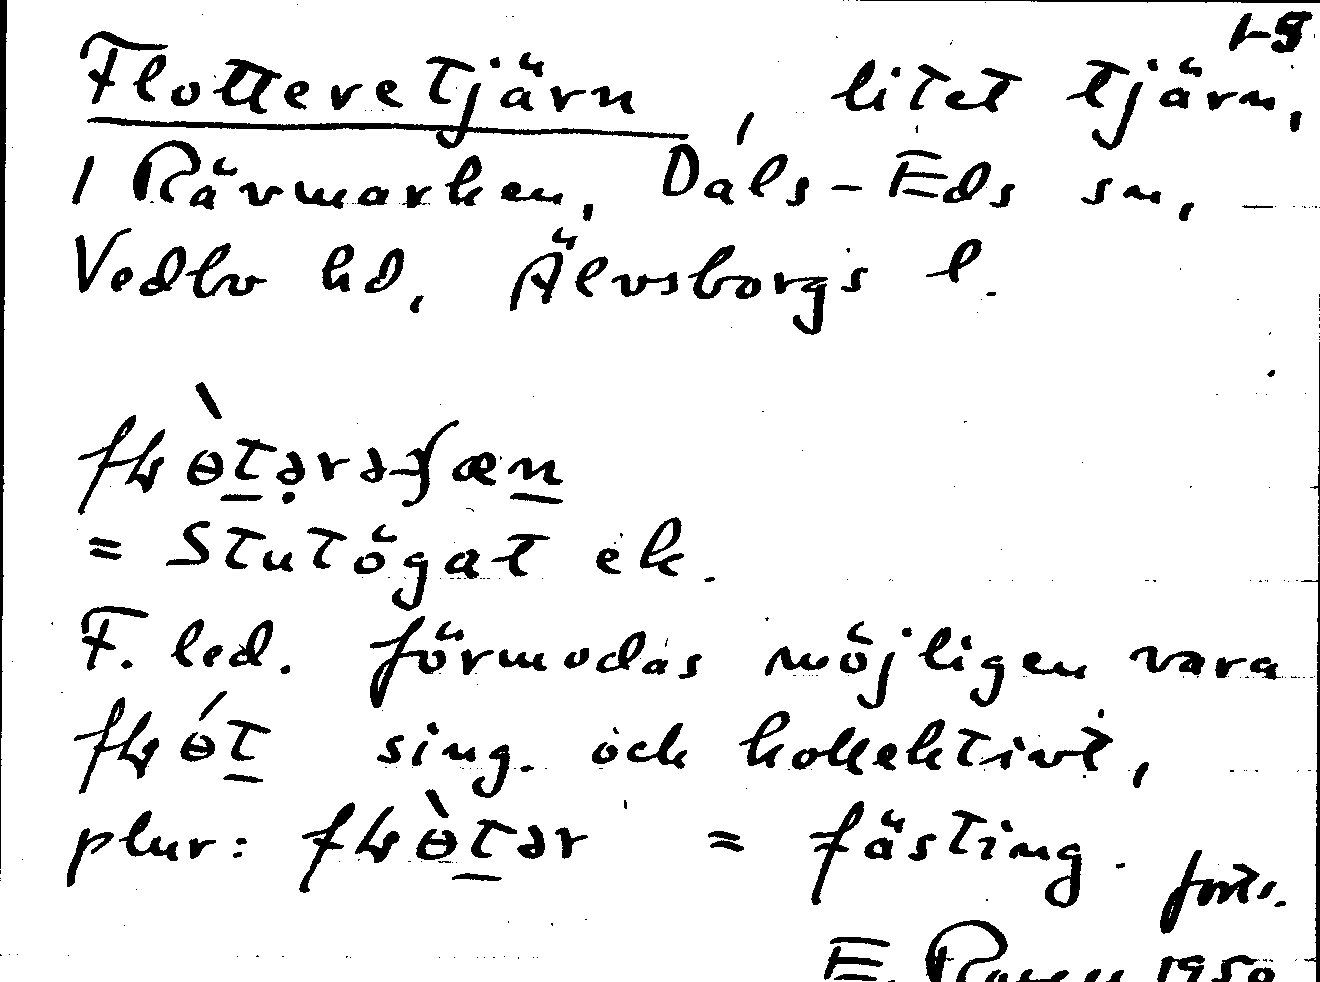 Flotteretjärn, litet tjärn,
i Rävmarken, Dals-Eds sn,
Vedbo hd, Älvsborgs l.
= Stutögat ek.
F. led. förmodas möjligen vara
sing. och kollektivt,
plur: = fästing. forts.
E. 1950